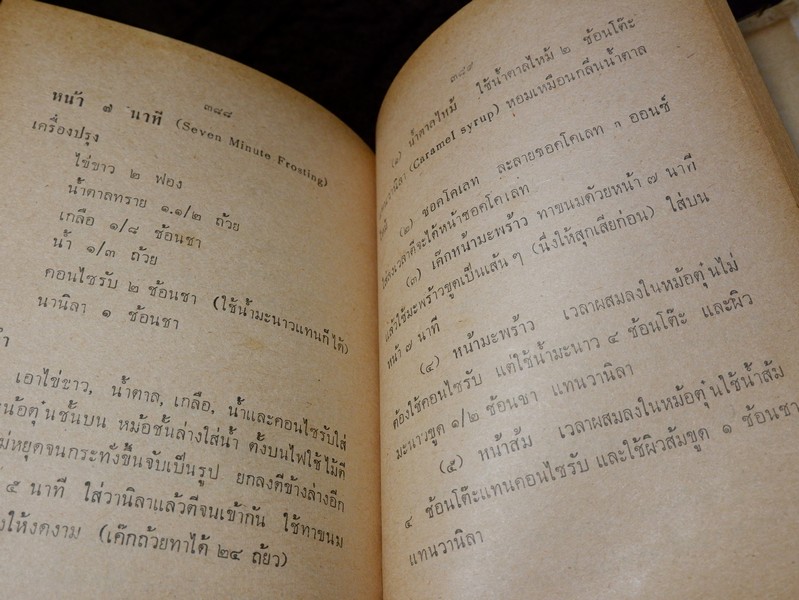 ๓๘๘
หน้า ๗ นาที (Seven Minute Frosting)
เครื่องปรุง
ไข่ขาว ๒ ฟอง
น้ำตาลทราย ๑.๑/๒ ถ้วย
เกลือ ๑/๘ ช้อนชา
น้ำ ๑/๓ ถ้วย
คอนไซรับ ๒ ช้อนชา (ใช้น้ำมะนาวแทนก็ได้)
นานิลา ๑ ช้อนชา
เอาไข่ขาว, น้ำตาล, เกลือ, น้ำและคอนไซรับใส่
หม้อตุ๋นชั้นบน หม้อชั้นล่างใส่น้ำ ตั้งบนไฟใช้ไม้ตี
ไม่หยุดจนกระทั่งขึ้นจับเป็นรูป ยกลงตีข้างล่างอีก
๕ นาที ใส่วานิลาแล้วตีจนเข้ากัน ใช้ทาขนม
ให้งดงาม (เค๊กถ้วยทาได้ ๒๔ ถ้ยว)
๓๘๙
(๑) น้ำตาลไหม้ ใช้น้ำตาลไหม้ ๒ ช้อนโต๊ะ
(Caramel syrup) หอมเหมือนกลิ่นน้ำตาล
ไหม้
(๒) ชอคโคเลท ละลายชอคโคเลท ๓ ออนซ์
ใส่ลงเวลาตีจะได้หน้าชอคโคเลท
(๓) เค๊กหน้ามะพร้าว ทาขนมด้วยหน้า ๗ นาที
แล้วใช้มะพร้าวขูดเป็นเส้นๆ (นึ่งให้สุกเสียก่อน) ใส่บน
หน้า ๗ นาที
(๔) หน้ามะพร้าว เวลาผสมลงในหม้อตุ๋นไม่
ต้องใช้คอนไซรับ แต่ใช้น้ำมะนาว ๔ ช้อนโต๊ะ และผิว
มะนาวขูด ๑/๒ ช้อนชา แทนวานิลา
(๕) หน้าส้ม เวลาผสมลงในหม้อตุ๋นใช้น้ำส้ม
๔ ช้อนโต๊ะแทนคอนไซรับ และใช้ผิวส้มขูด ๑ ช้อนชา
แทนวานิลา